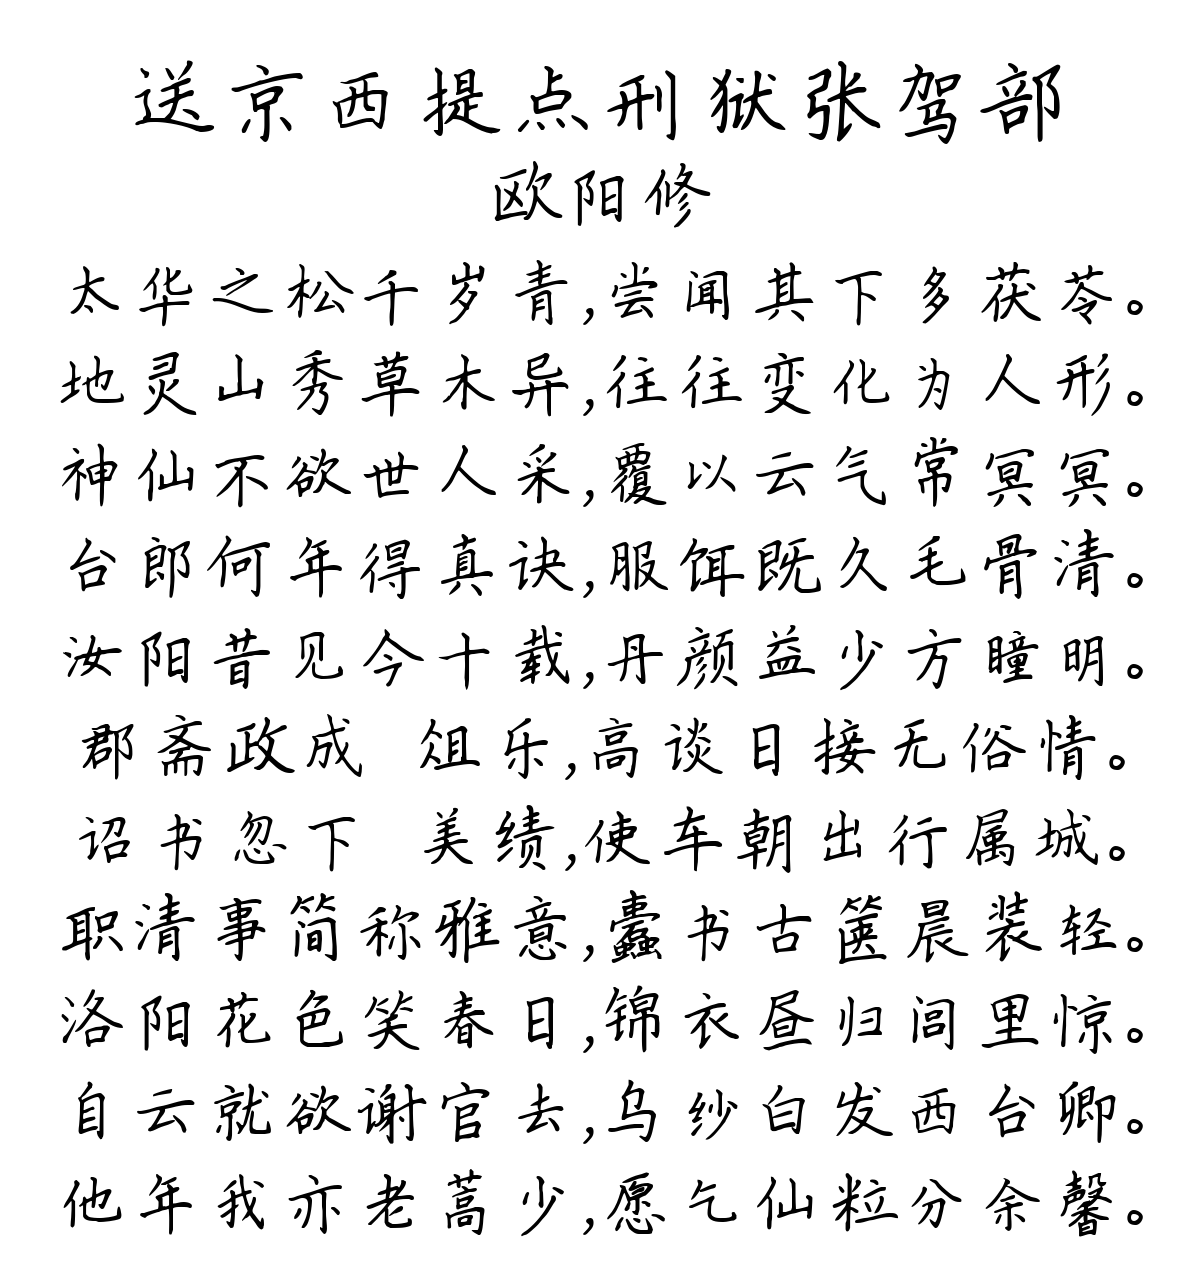 送京西提点刑狱张驾部
欧阳修
太华之松千岁青,尝闻其下多茯苓。
地灵山秀草木异,往往变化为人形。
神仙不欲世人采,覆以云气常冥冥。
台郎何年得真诀,服饵既久毛骨清。
汝阳昔见今十载,丹颜益少方瞳明。
郡斋政成 俎乐,高谈日接无俗情。
诏书忽下 美绩,使车朝出行属城。
职清事简称雅意,蠹书古箧晨装轻。
洛阳花色笑春日,锦衣昼归闾里惊。
自云就欲谢官去,乌纱白发西台卿。
他年我亦老蒿少,愿乞仙粒分余馨。